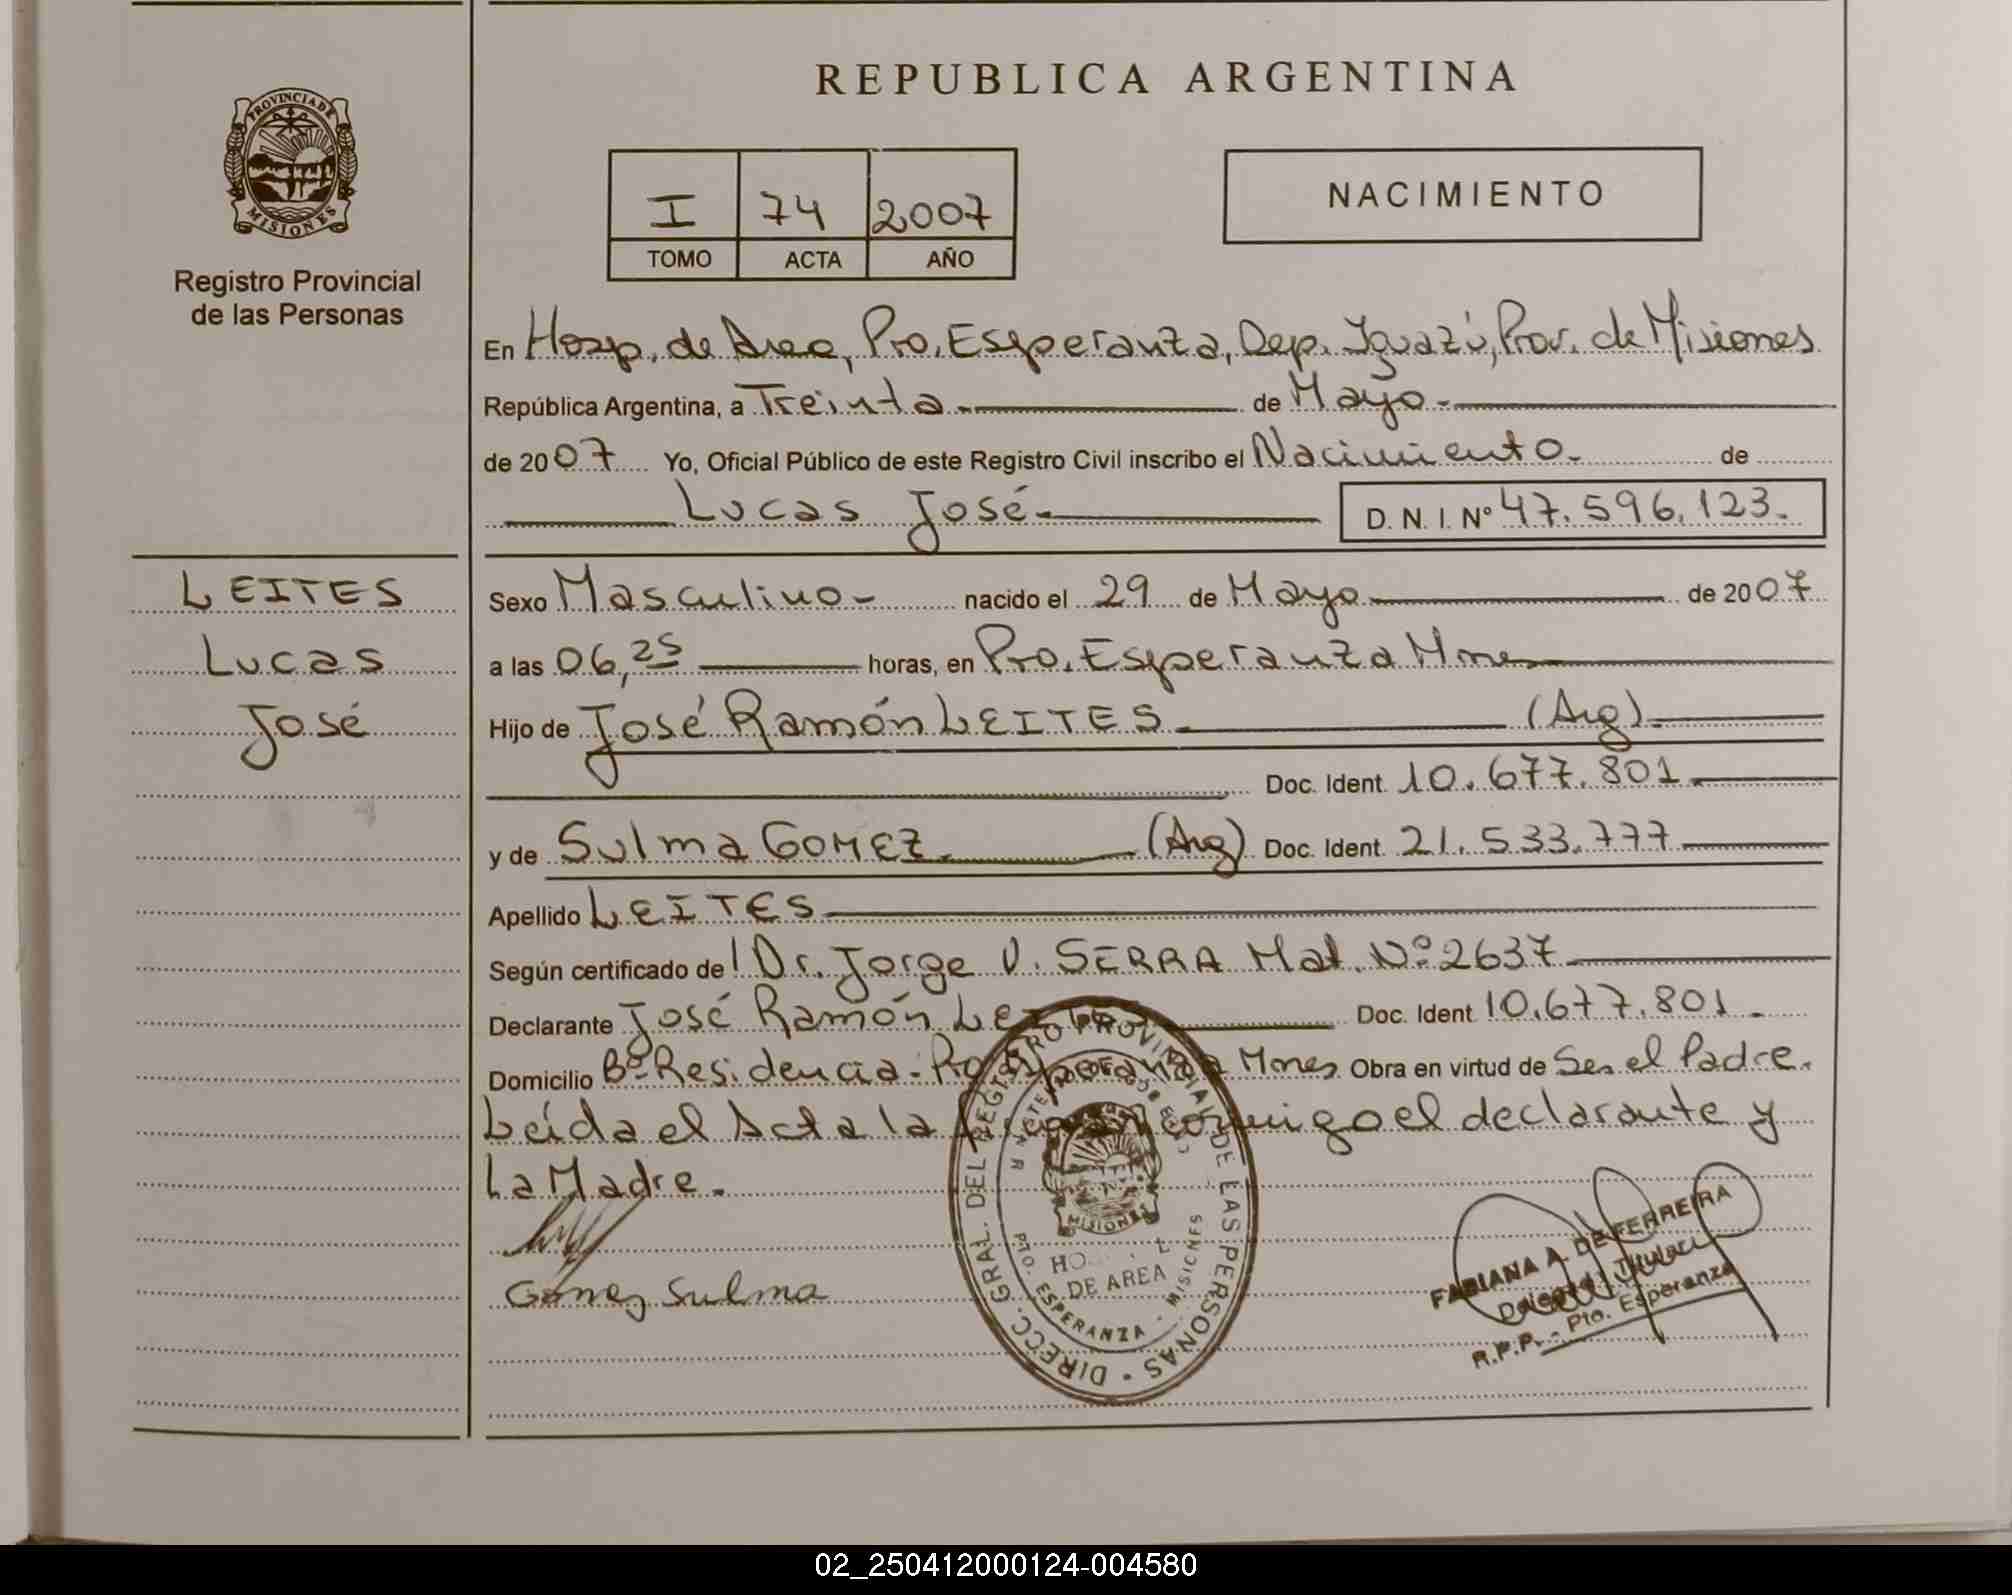 REPUBLICA ARGENTINA
PROVINCIA DE MISIONES
Registro Provincial
de las Personas
I 74 2007
TOMO ACTA AÑO
NACIMIENTO
En Hosp. de Area, Pto. Esperanza, Dep. Iguazú, Prov. de Misiones
República Argentina, a Treinta.- de Mayo.-
de 2007 Yo, Oficial Público de este Registro Civil inscribo el Nacimiento.- de
Lucas José.- D. N. I. Nº 47.596.123.
LEITES
Lucas
José
Sexo Masculino.- nacido el 29 de Mayo de 2007
a las 06,25 horas, en Pto. Esperanza Mnes
Hijo de José Ramón LEITES.- (Arg).-
Doc. Ident. 10.677.801.-
y de Sulma GOMEZ.- (Arg) Doc. Ident. 21.533.777
Apellido LEITES
Según certificado de l Dr. Jorge V. SERRA Mat. Nº 2637
Declarante José Ramón Doc. Ident. 10.677.801.-
Domicilio Bº Residencia - Pto. Esperanza Mnes Obra en virtud de Ser el Padre.
Leída el Acta la firman conmigo el declarante y
La Madre.
Gomez Sulma
DIRECC. GRAL. DEL REGISTRO PROVINCIAL DE LAS PERSONAS
MISIONES
DE AREA
PTO. ESPERANZA - MISIONES
FABIANA A. DE FERREIRA
Delegada Titular
R.P.P. - Pto. Esperanza
02_250412000124-004580